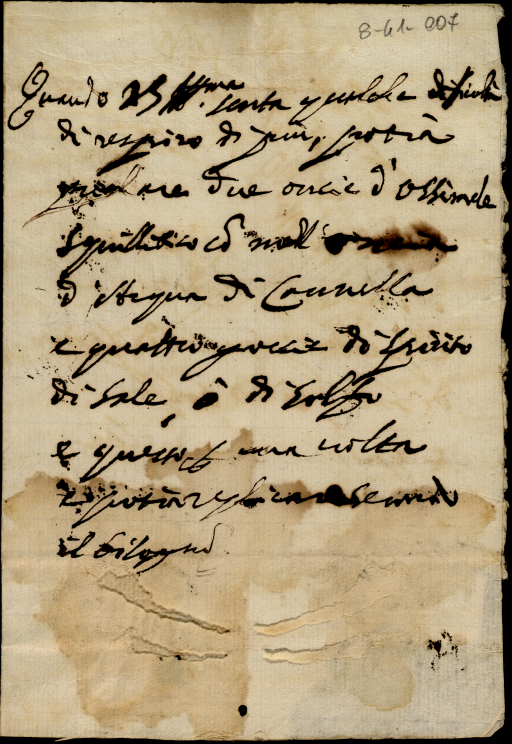 8-41-007
Quando VS Ill.ma senta qualche dificoltà
di respiro di più, potrà
pigliare due oncie d'Ossimele
squillitico cō mezz'oncia
d'Acqua di Cannella
e quattro goccie di spirito
di sale, ò di solfo
e questo una volta
e potrà replicare secondo
il bisogno